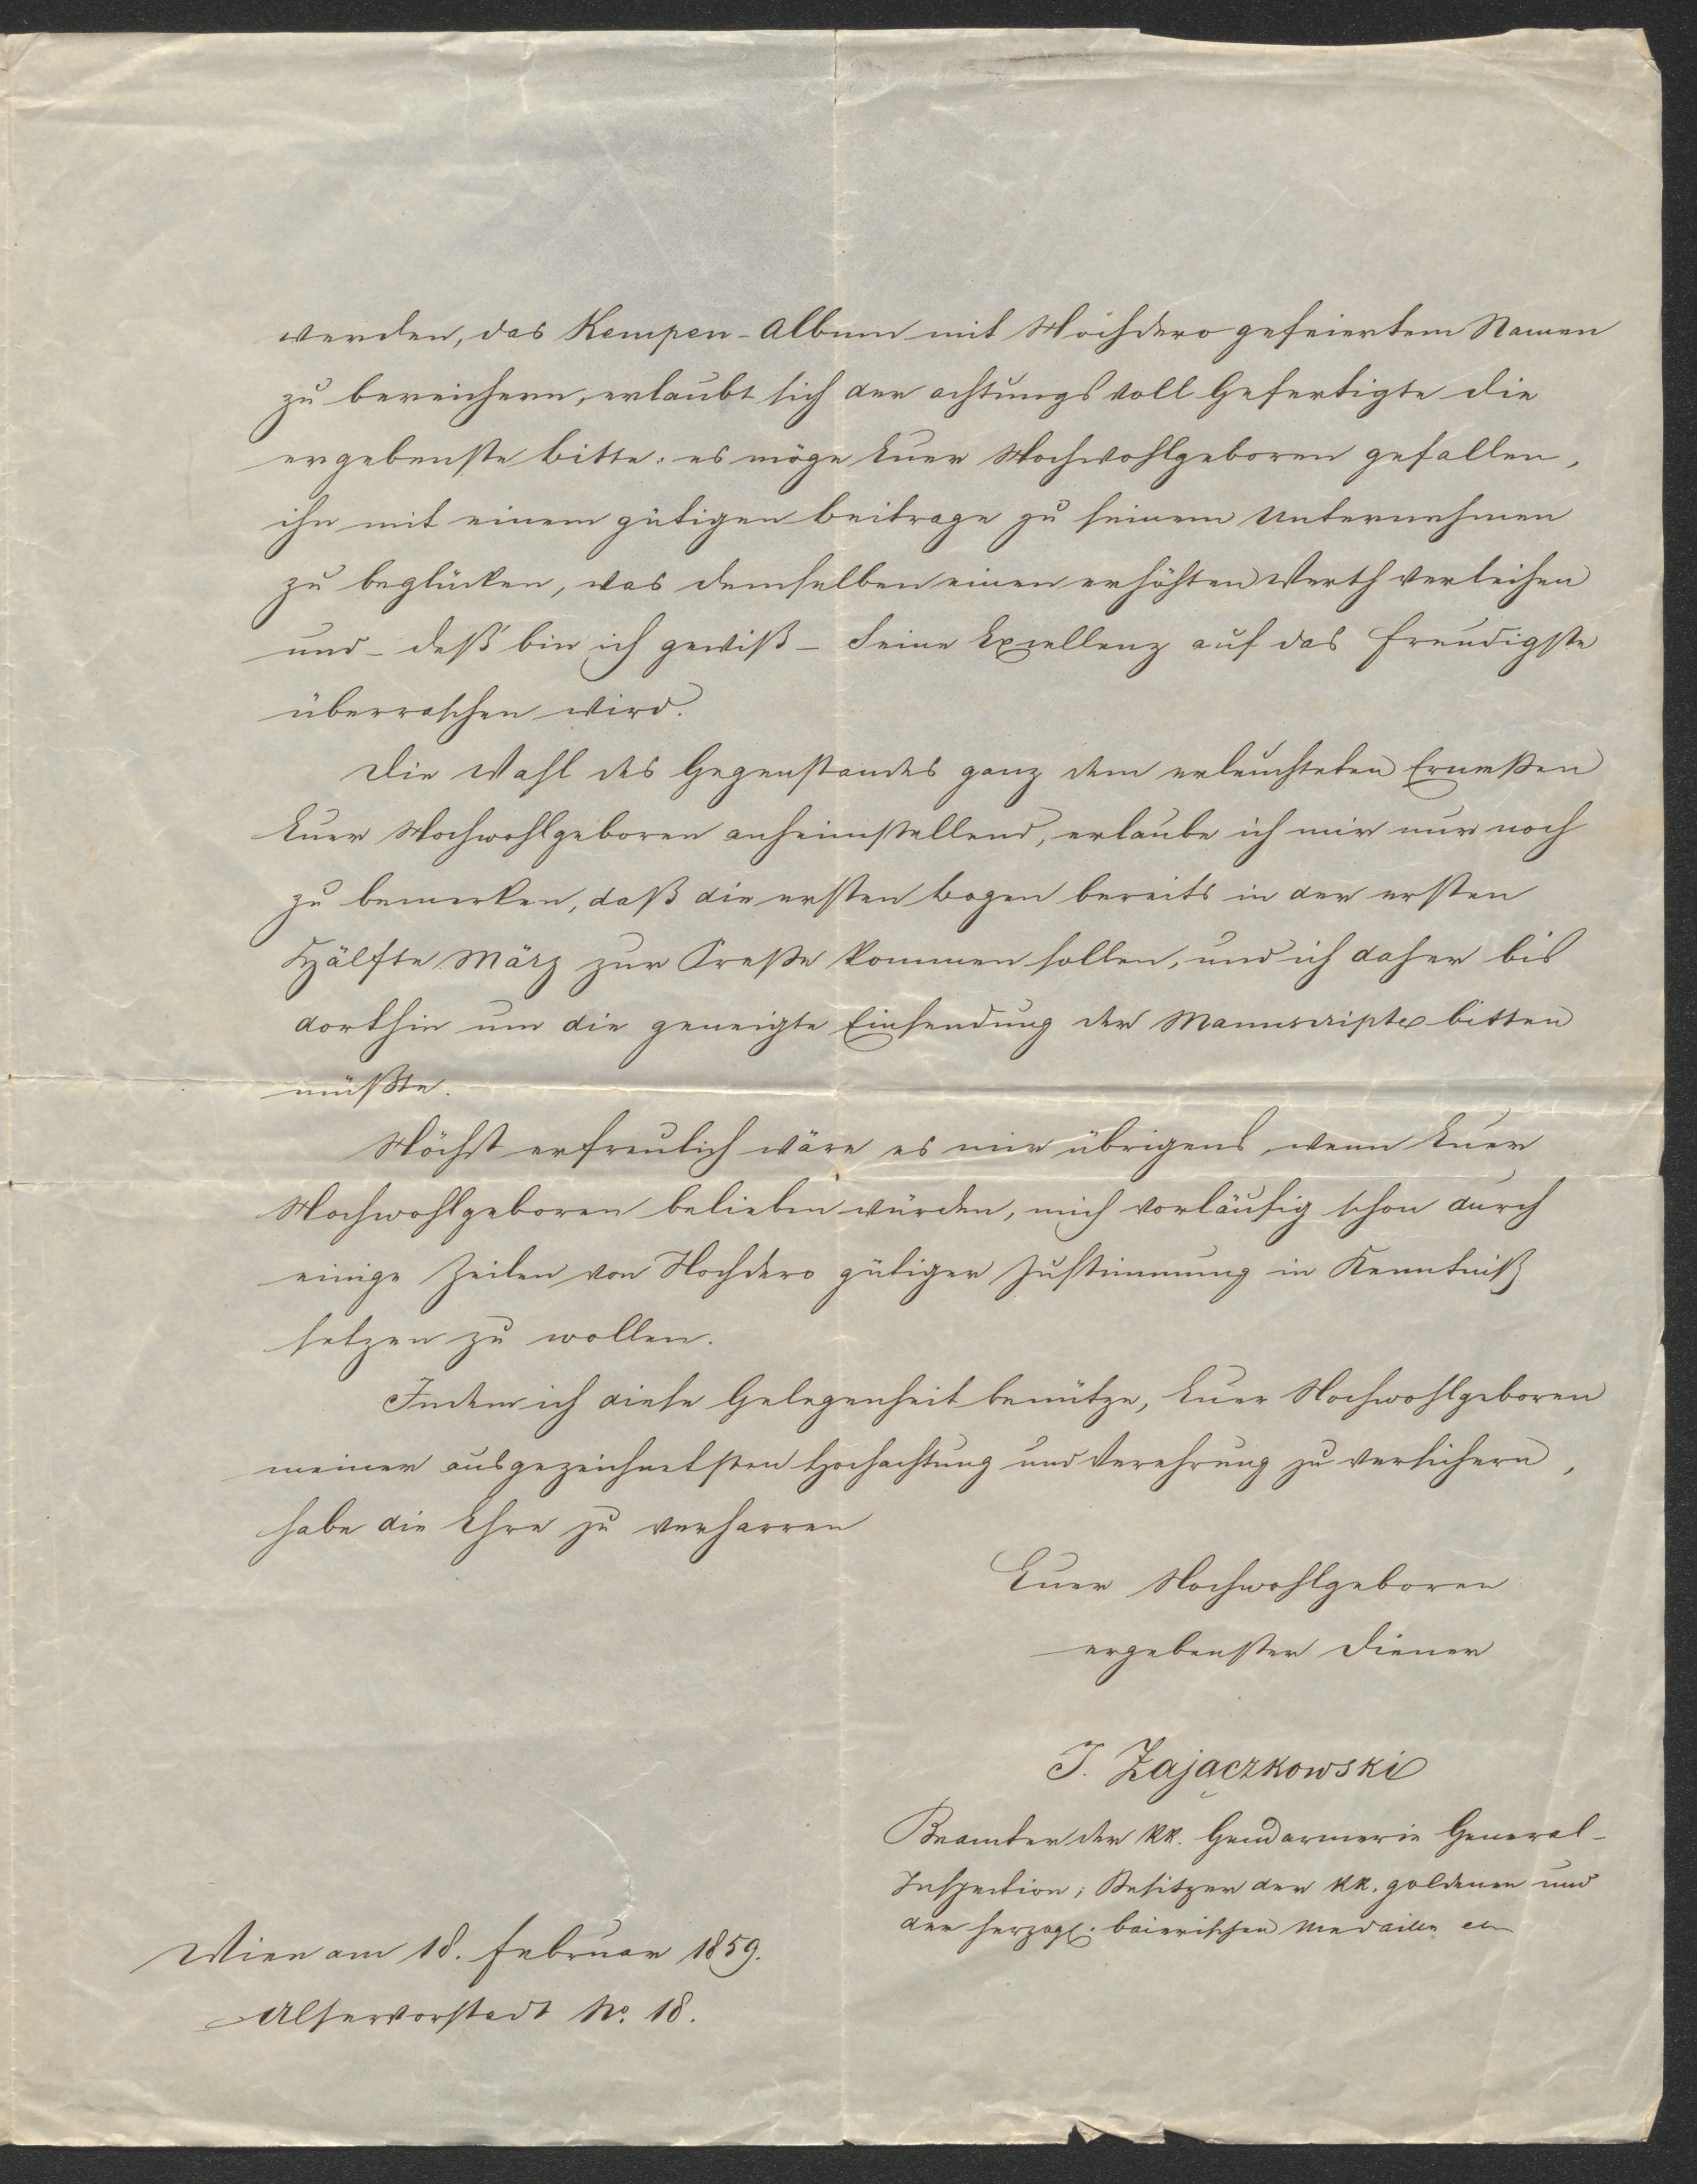 werden, das Kempen-Album mit Hochdero gefeiertem Namen
zu bereichern, erlaubt sich der achtungsvoll Gefertigte die
ergebenste Bitte: es möge Euer Hochwohlgeboren gefallen,
ihn mit einem gütigen Beitrage zu seinem Unternehmen
zu beglücken, was demselben einen erhöhten Werth verleihen
und – deß bin ich gewiß – Seine Excellenz auf das freudigste
überraschen wird.
Die Wahl des Gegenstandes ganz dem erleuchteten Ermeßen
Euer Hochwohlgeboren anheimstellend, erlaube ich mir nur noch
zu bemerken, daß die ersten Bogen bereits in der ersten
Hälfte März zur Preße kommen sollen, und ich daher bis
dorthin um die geneigte Einsendung der Manuscripte bitten
müßte.
Höchst erfreulich wäre es mir übrigens, wenn Euer
Hochwohlgeboren belieben würden, mich vorläufig schon durch
einige Zeilen von Hochdero gütiger Zustimmung in Kenntniß
setzen zu wollen.
Indem ich diese Gelegenheit benütze, Euer Hochwohlgeboren
meiner ausgezeichnetsten Hochachtung und Verehrung zu versichern,
habe die Ehre zu verharren
Euer Hochwohlgeboren
ergebenster Diener
J. Zajączkowski
Beamter der kk. Gendarmerie General-
Inspection; Besitzer der kk. goldenen und
der herzogl. baierischen Medaille
Wien am 18. Februar 1859.
Alservorstadt No. 18.